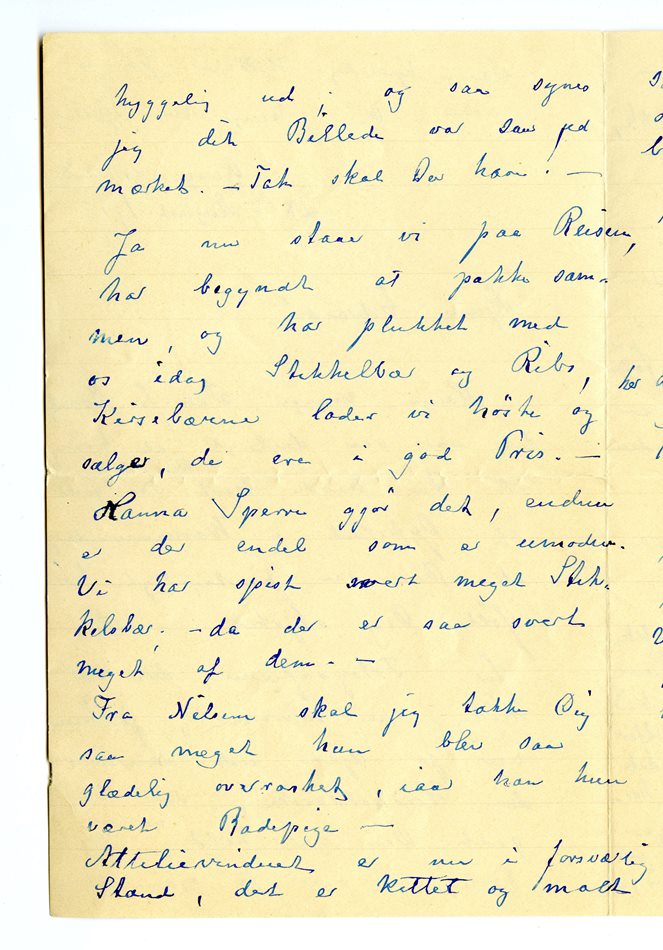 hyggelig ud, og saa synes
jeg det Billede var saa ud
mærket. – Tak skal Du have! –
Ja nu staar vi paa Reisen,
har begyndt at pakke sam-
men, og har plukket med
os idag Stikkelbær og Ribs, her
Kirsebærene lader vi höste og
sælger, de ere i god Pris. –
Hanna Sperre gjör det, endnu
er der endel som er umodne.
Vi har spist svert meget Stik-
kelsbær. – da der er saa svert
meget af dem. –
Fra Nilsen skal jeg takke Dig
saa meget hun blev saa
glædelig overrasket, iaar har hun
været Badepige –
Attelievinduet er nu i forsvarlig
Stand, det er kittet og malt